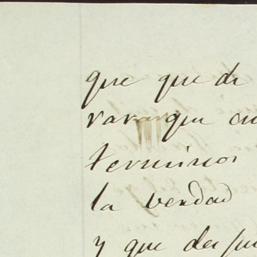 que que de
rar que en
terminos
la verdad
y que des